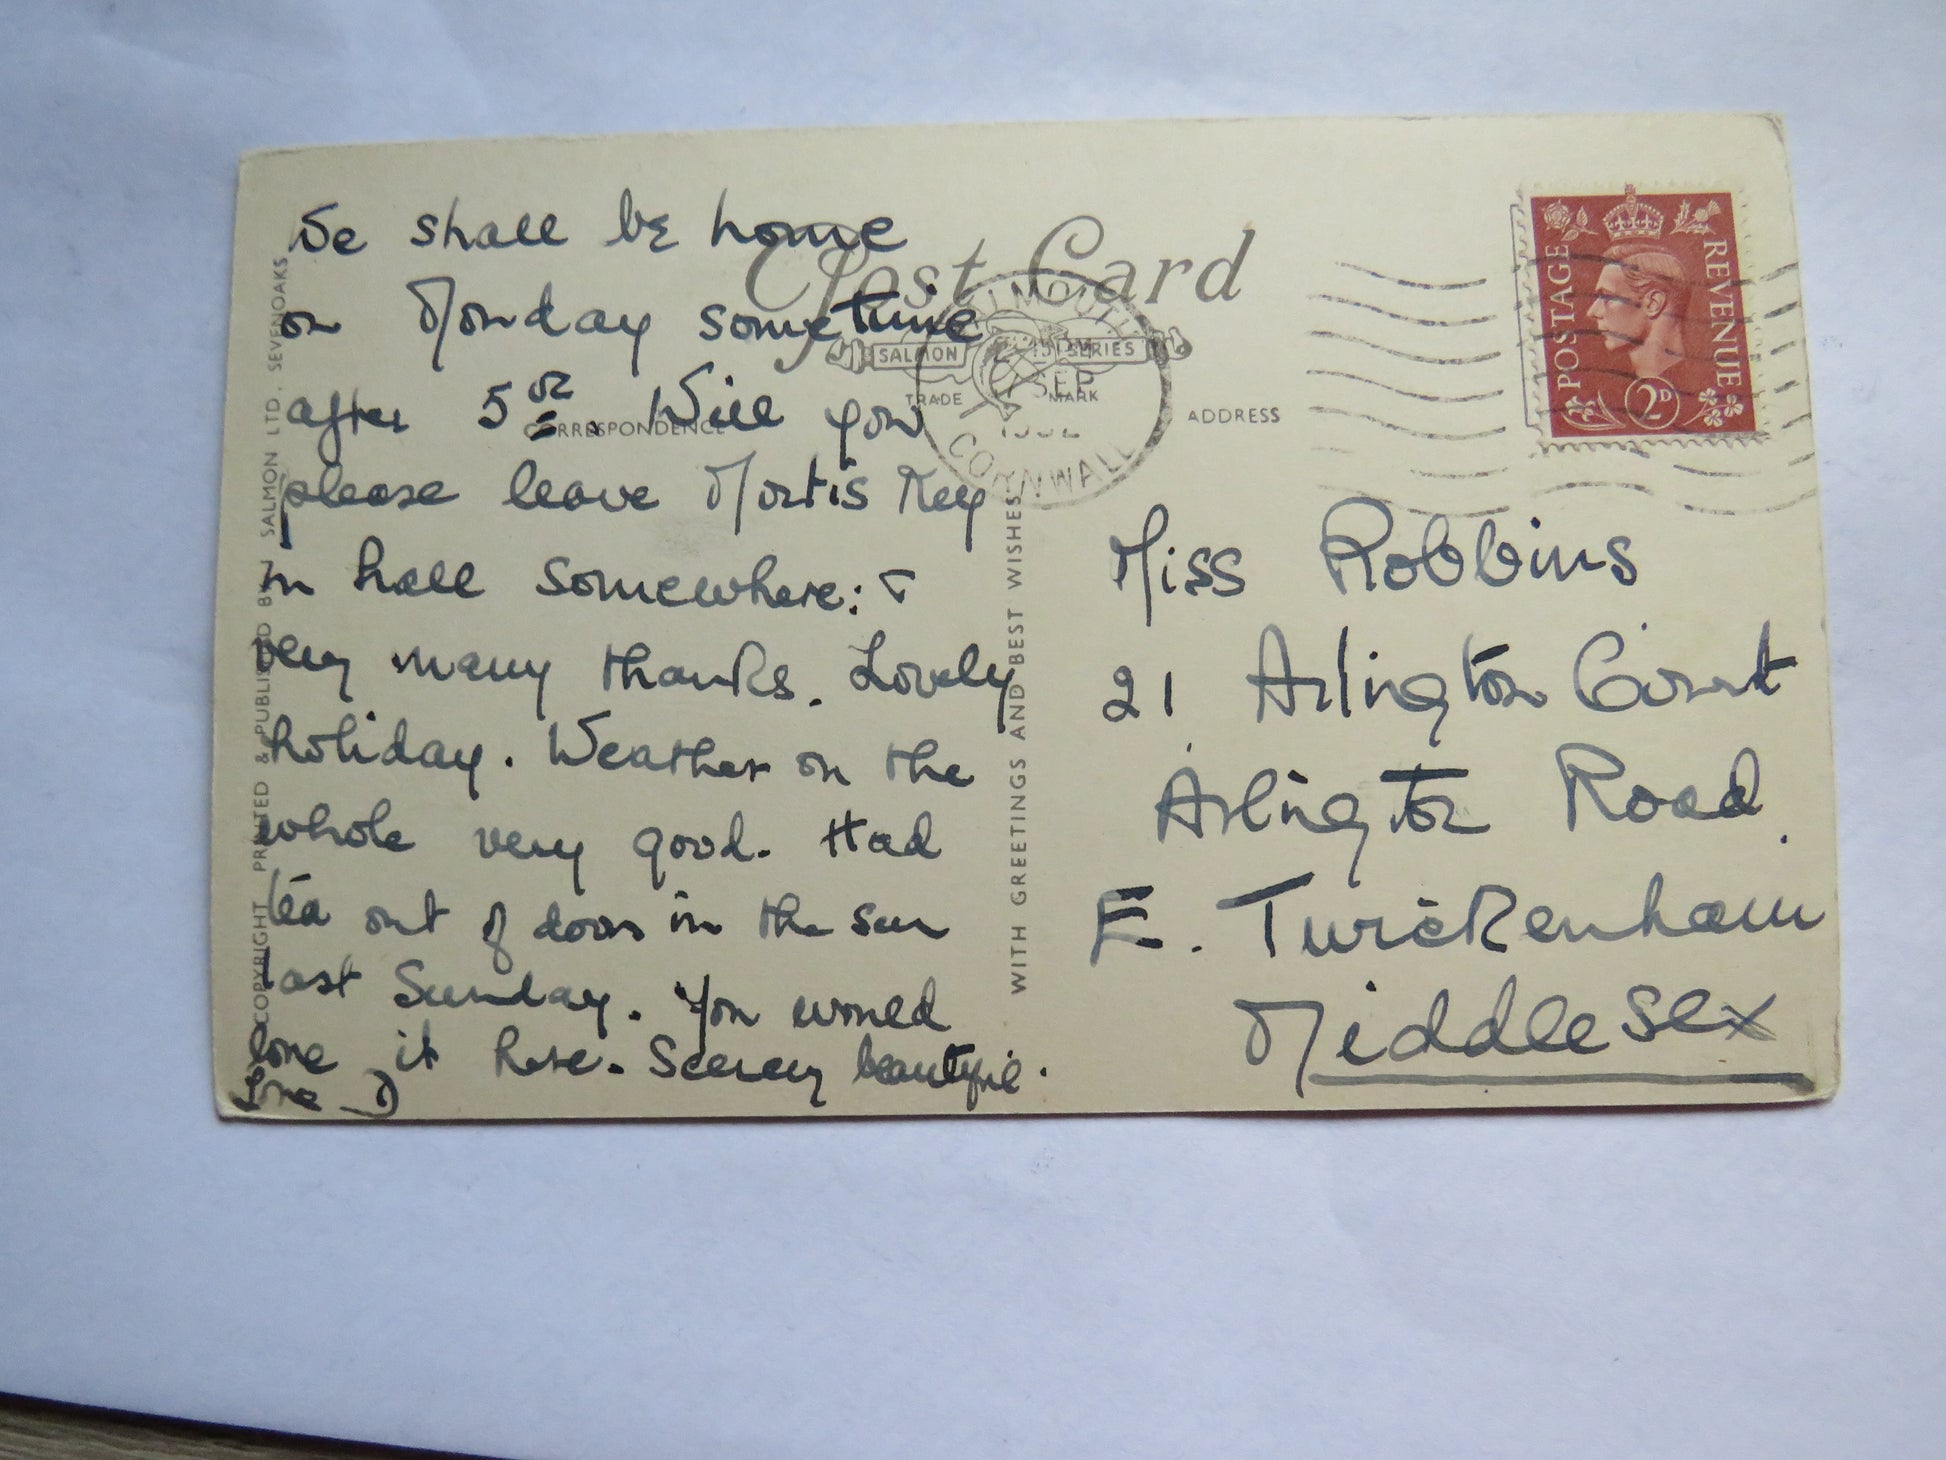 We shall be home
on Monday sometime
after 5 oc. Will you
please leave Morti's Key
in hall somewhere: &
very many thanks. Lovely
holiday. Weather on the
whole very good. Had
tea out of doors in the sun
last Sunday. You would
love it here. Scenery beautiful.
Love D
COPYRIGHT PRINTED & PUBLISHED BY J. SALMON LTD. SEVENOAKS
Post Card
SALMON SERIES
TRADE MARK
CORRESPONDENCE
ADDRESS
FALMOUTH
SEP
1952
CORNWALL
WITH GREETINGS AND BEST WISHES
POSTAGE
REVENUE
2D
Miss Robbins
21 Arlington Court
Arlington Road.
E. Twickenham
Middlesex